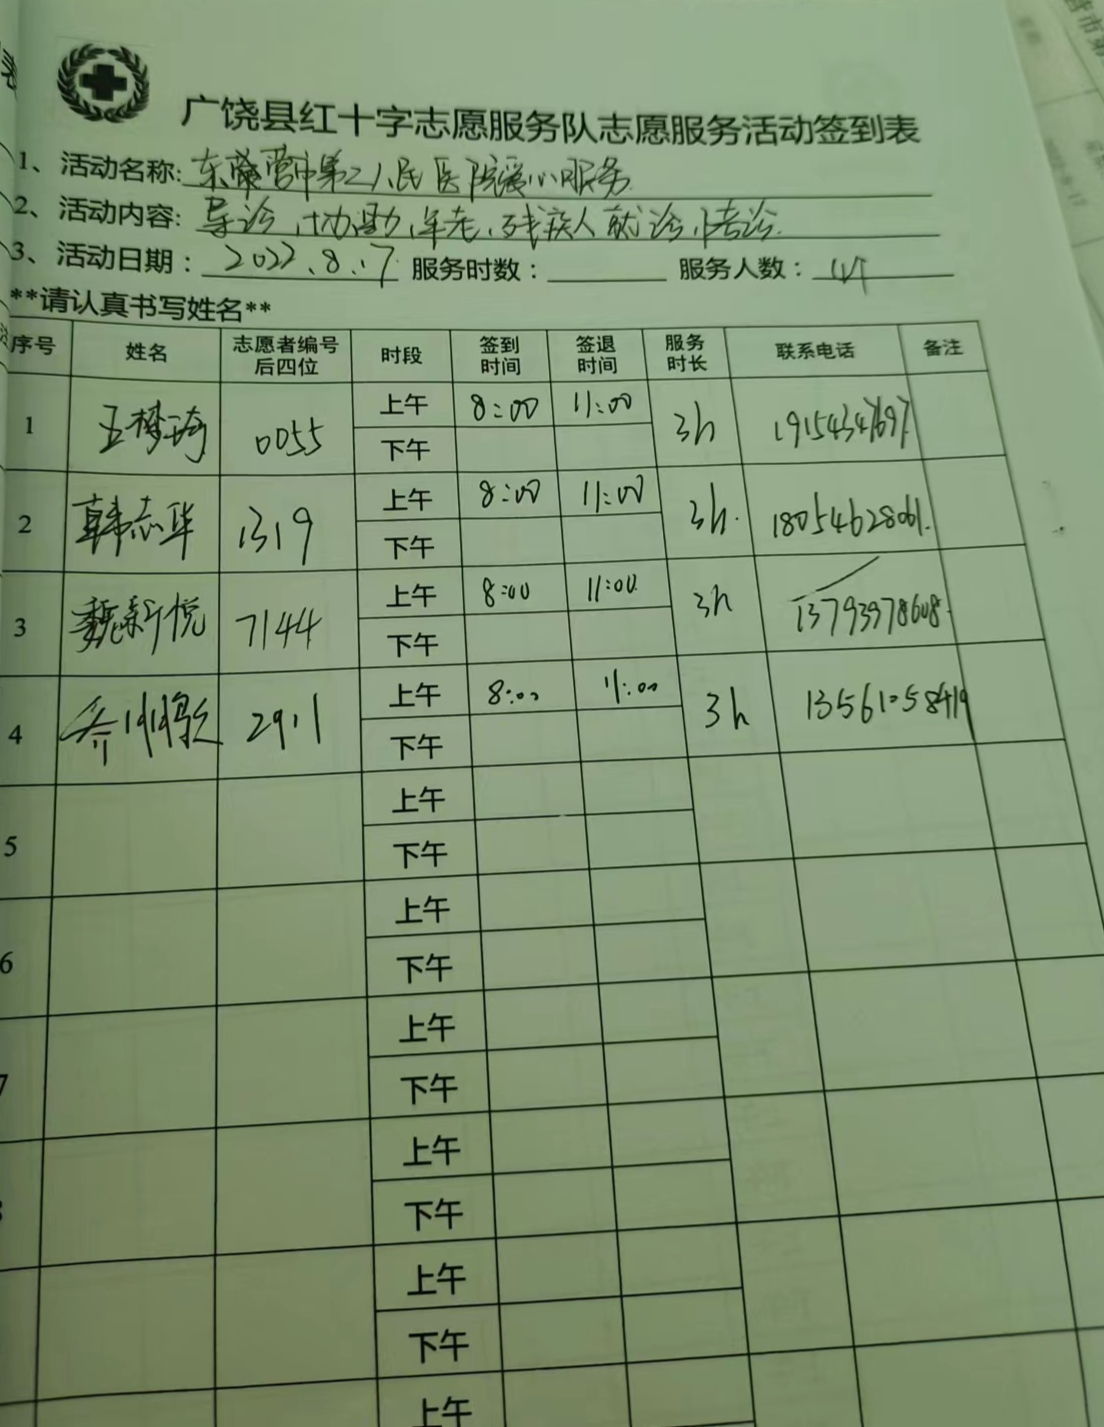 广饶县红十字志愿服务队志愿服务活动签到表
1、活动名称: 东营市第二人民医院爱心服务
2、活动内容: 导诊,协助,年老,残疾人就诊,陪诊.
3、活动日期: 2022.8.17 服务时数: 服务人数:
**请认真书写姓名**
序号 姓名 志愿者编号后四位 时段 签到时间 签退时间 服务时长 联系电话 备注
1 王梦琦 0055 上午 8:00 11:00 3h
下午
2 韩志华 1319 上午 8:00 11:00 3h. 18054628061.
下午
3 魏新悦 7144 上午 8:00 11:00 3h 13793978608.
下午
4 2911 上午 8:00 11:00 3h 13561058419
下午
5 上午
下午
6 上午
下午
7 上午
下午
上午
下午
上午
下午
上午